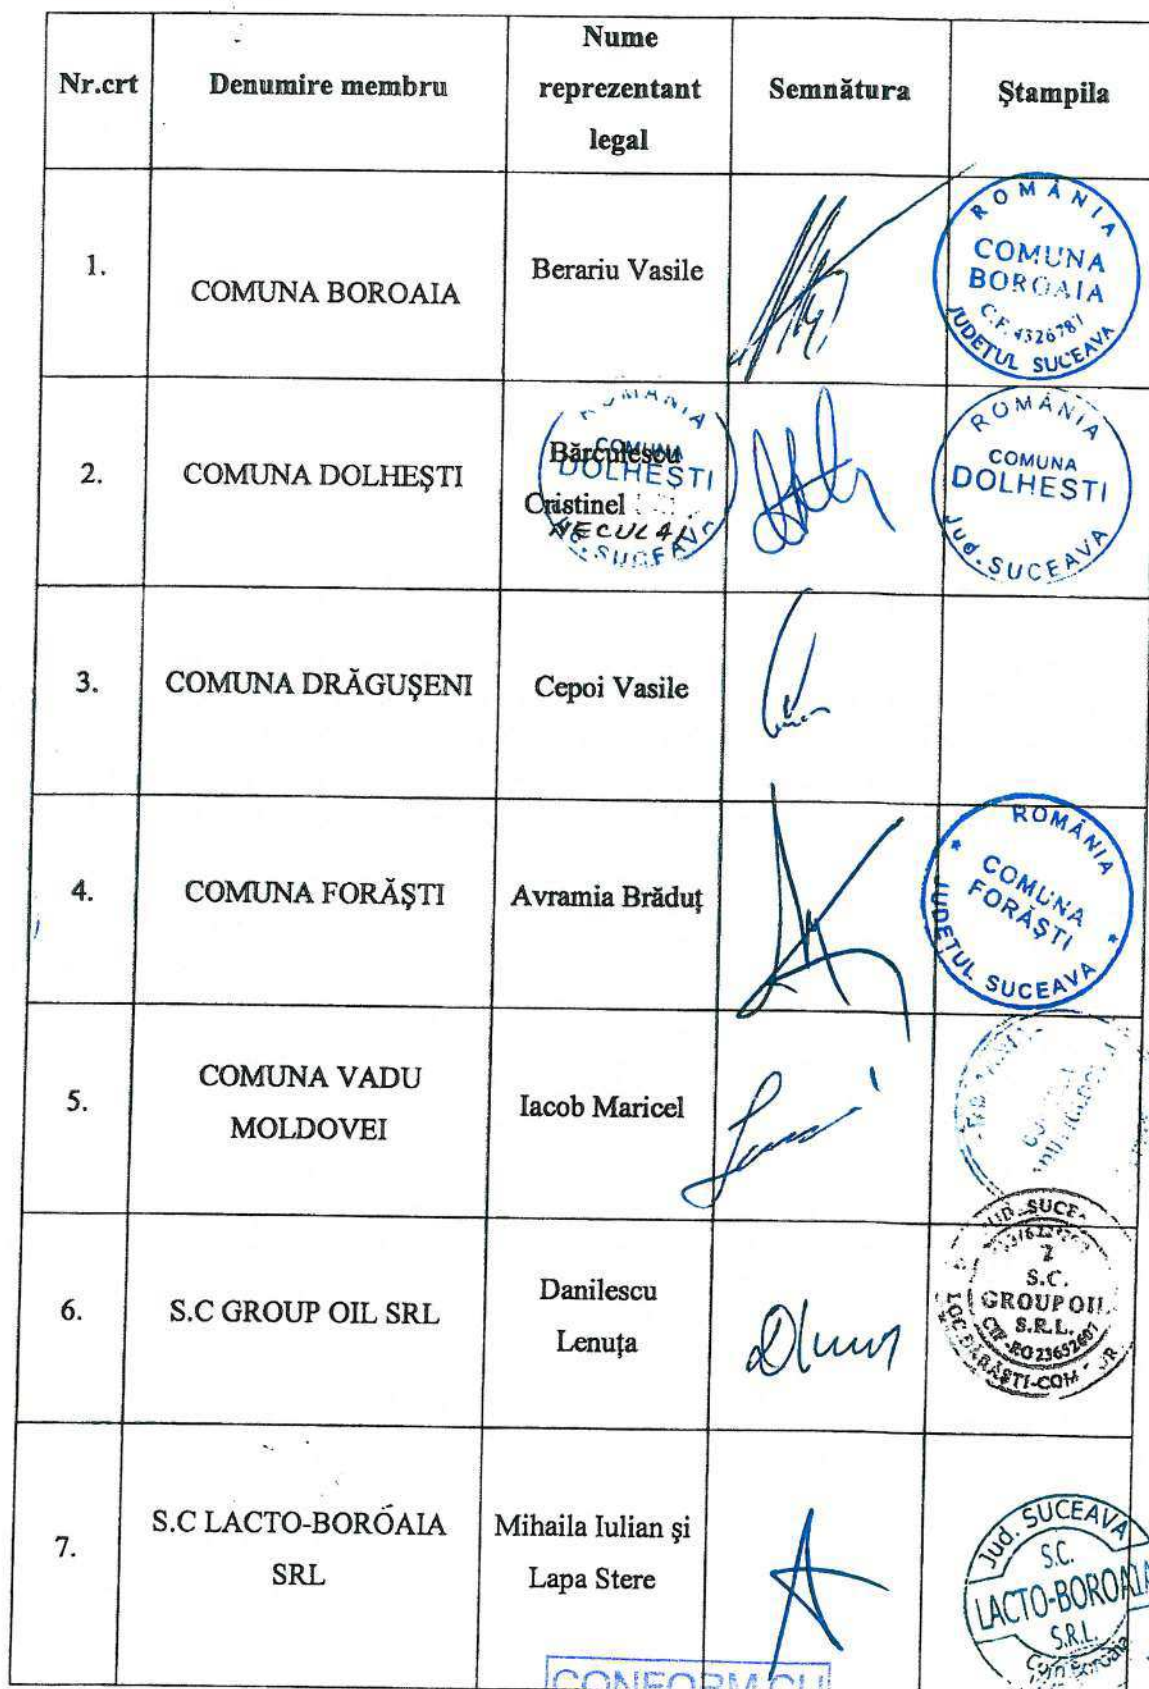 Nr.crt
Denumire membru
Nume
reprezentant
legal
Semnătura
Ştampila
1.
COMUNA BOROAIA
Berariu Vasile
ROMÂNIA
COMUNA
BOROAIA
C.F. 4326787
JUDETUL SUCEAVA
2.
COMUNA DOLHEŞTI
Bărculescu
Cristinel
NECULAI
ROMÂNIA
COMUNA
DOLHEŞTI
Jud. SUCEAVA
ROMÂNIA
COMUNA
DOLHESTI
Jud. SUCEAVA
3.
COMUNA DRĂGUŞENI
Cepoi Vasile
4.
COMUNA FORĂŞTI
Avramia Brăduţ
ROMÂNIA
COMUNA
FORĂŞTI
JUDETUL SUCEAVA
5.
COMUNA VADU
MOLDOVEI
Iacob Maricel
6.
S.C GROUP OIL SRL
Danilescu
Lenuţa
S.C.
GROUP OIL
S.R.L.
7.
S.C LACTO-BOROAIA
SRL
Mihaila Iulian şi
Lapa Stere
Jud. SUCEAVA
S.C.
LACTO-BOROAIA
S.R.L.
Com. Boroaia
CONFORM CU